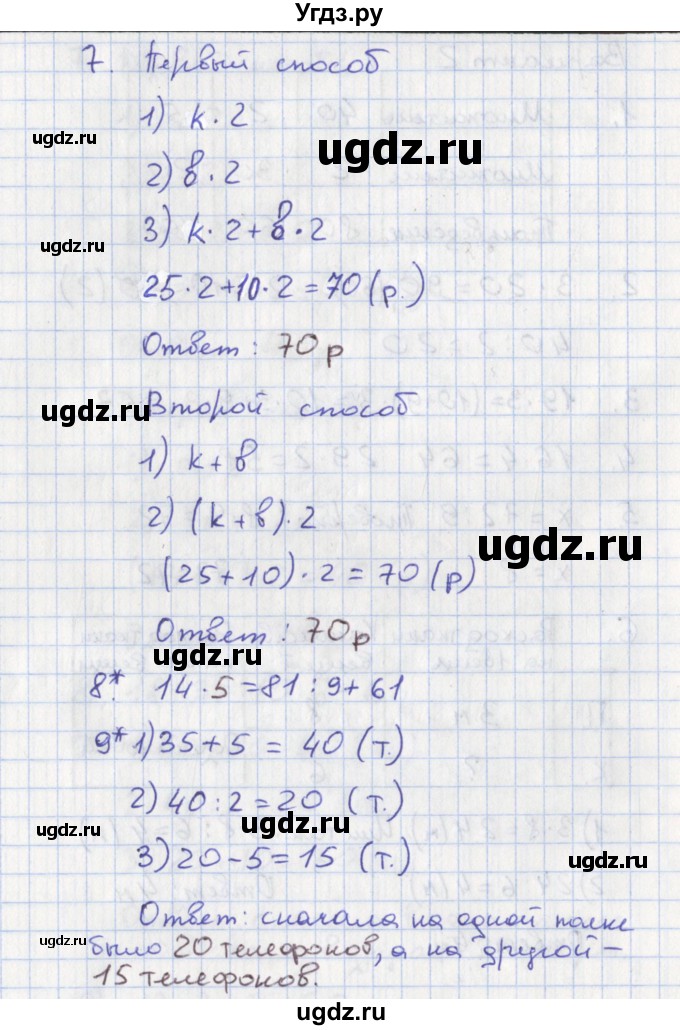 Угдз.ру
7. Первый способ
1) k · 2
2) в · 2
3) k · 2 + в · 2
25 · 2 + 10 · 2 = 70 (р.)
Ответ: 70 р
Второй способ
1) k + в
2) (k + в) · 2
(25 + 10) · 2 = 70 (р)
Ответ: 70 р
8*. 14 · 5 = 81 : 9 + 61
9* 1) 35 + 5 = 40 (т.)
2) 40 : 2 = 20 (т.)
3) 20 - 5 = 15 (т.)
Ответ: сначала на одной полке
было 20 телефонов, а на другой –
15 телефонов.
ugdz.ru
ugdz.ru
ugdz.ru
ugdz.ru
ugdz.ru
ugdz.ru
ugdz.ru
ugdz.ru
ugdz.ru
ugdz.ru
ugdz.ru